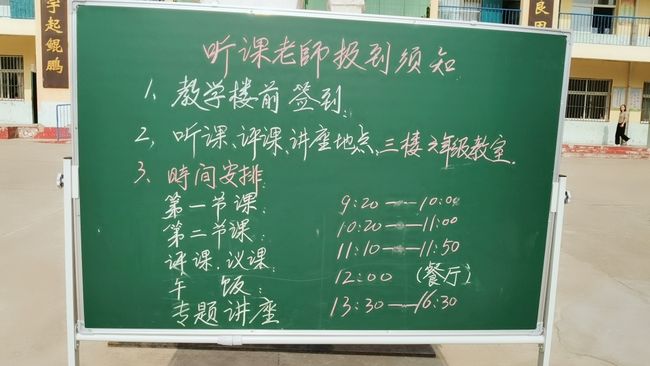 宇起鲲鹏
听课老師报到须知
1、教学楼前签到.
2, 听课、评课、讲座地点、三楼六年级教室.
3、時间安排:
第一节课: 9:20——10:00
第二节课: 10:20——11:00
评课、议课: 11:10——11:50
午 饭: 12:00 (餐厅)
专题讲座 13:30——16:30